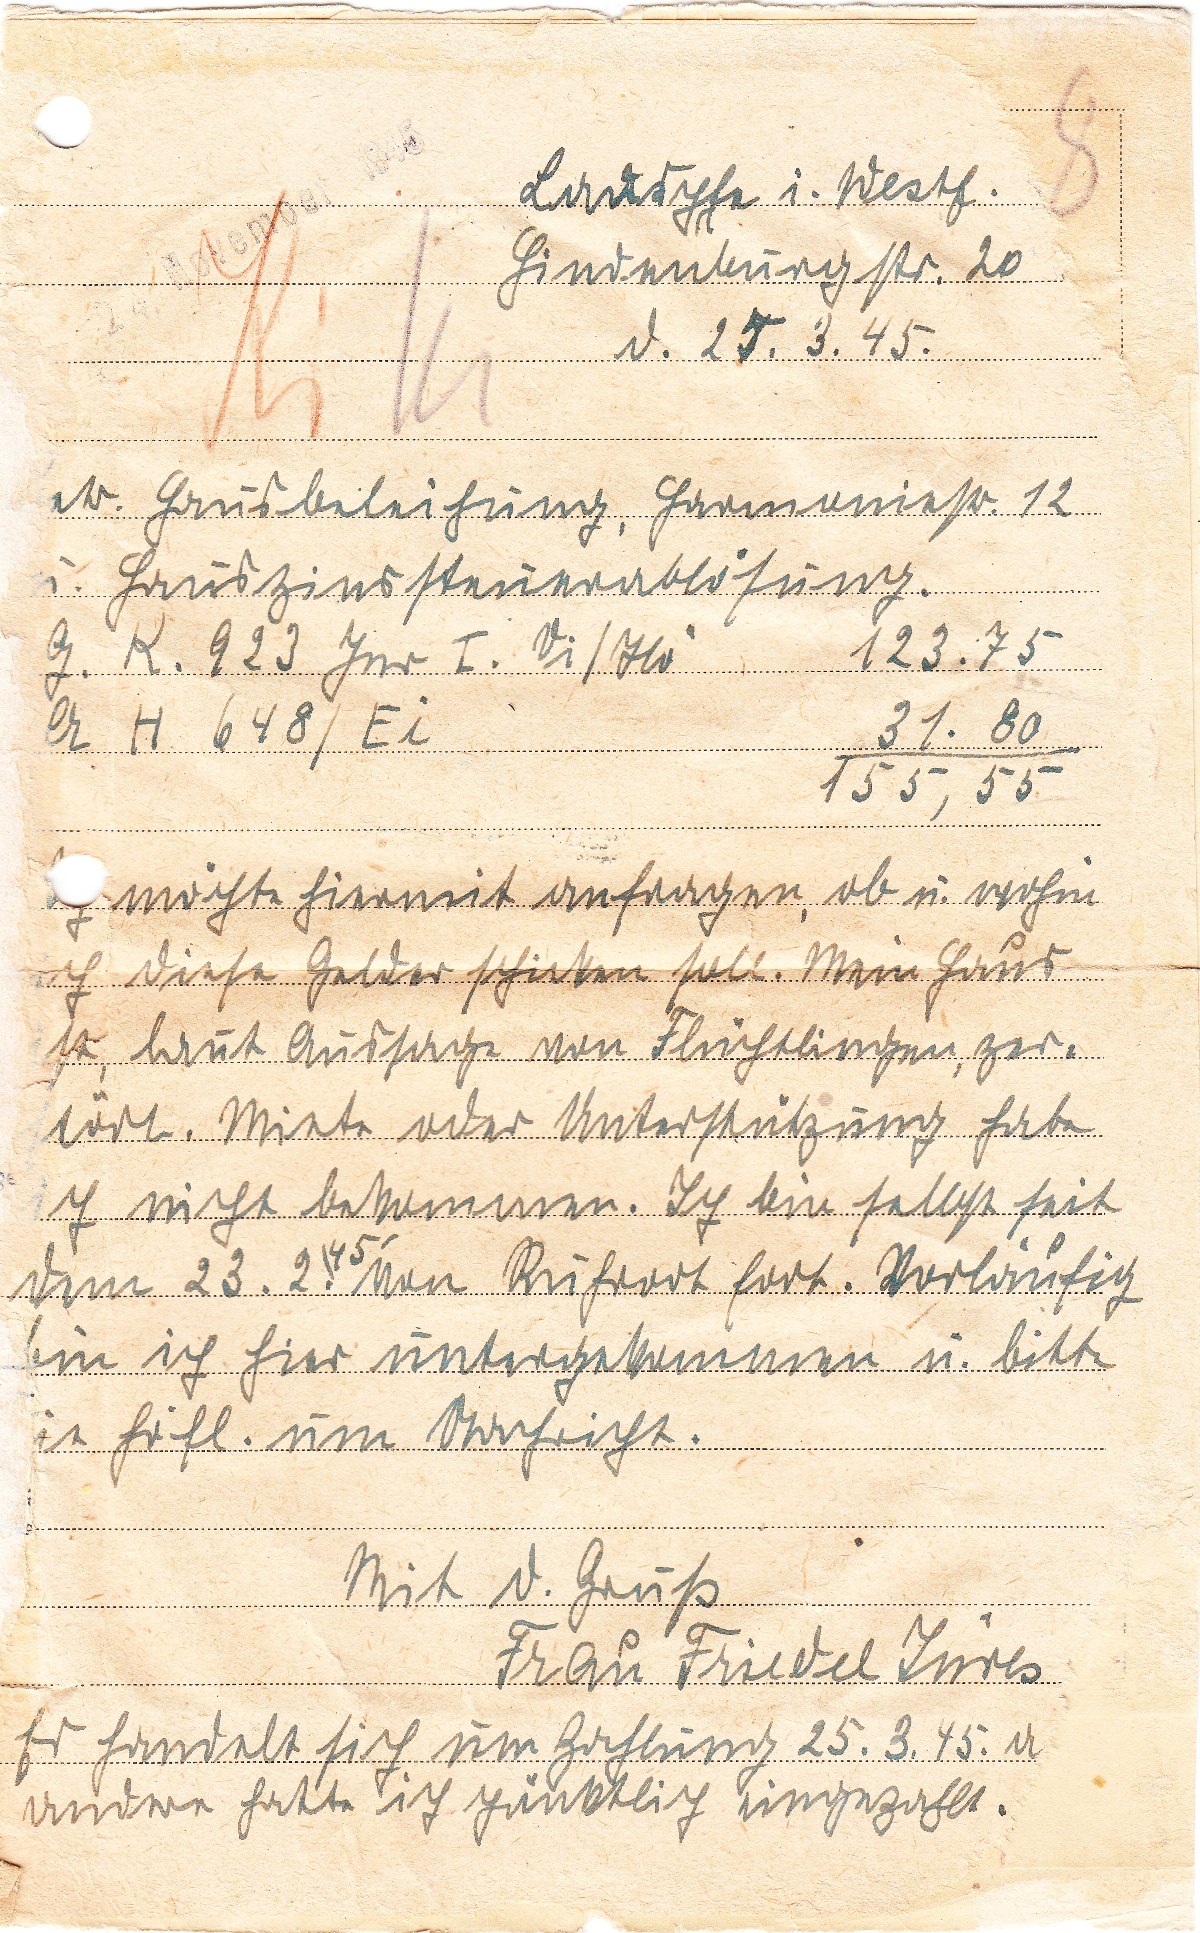 8
November 1945
Laasphe i. Westf.
Hindenburgstr. 20
d. 25. 3. 45.
Ki Ki
etr. Hausbeleihung, Harmoniestr. 12
u. Hauszinssteuerablösung.
G. K. 923 Jnr I. Di/Hö 123.75
A H 648/Ei 31. 80
155,55
Ich möchte hiermit anfragen, ob u. wohin
ch diese Gelder schicken soll. Mein Haus
st, laut Aussage von Flüchtlingen, zer-
tört. Miete oder Unterstützung habe
ch nicht bekommen. Ich bin selbst seit
dem 23. 2. 45 von Ruhrort fort. Vorläufig
bin ich hier untergekommen u. bitte
ie höfl. um Nachricht.
Mit d. Gruß
Frau Friedel Jürls
Es handelt sich um Zahlung 25. 3. 45. a
andere hatte ich pünktlich eingezahlt.